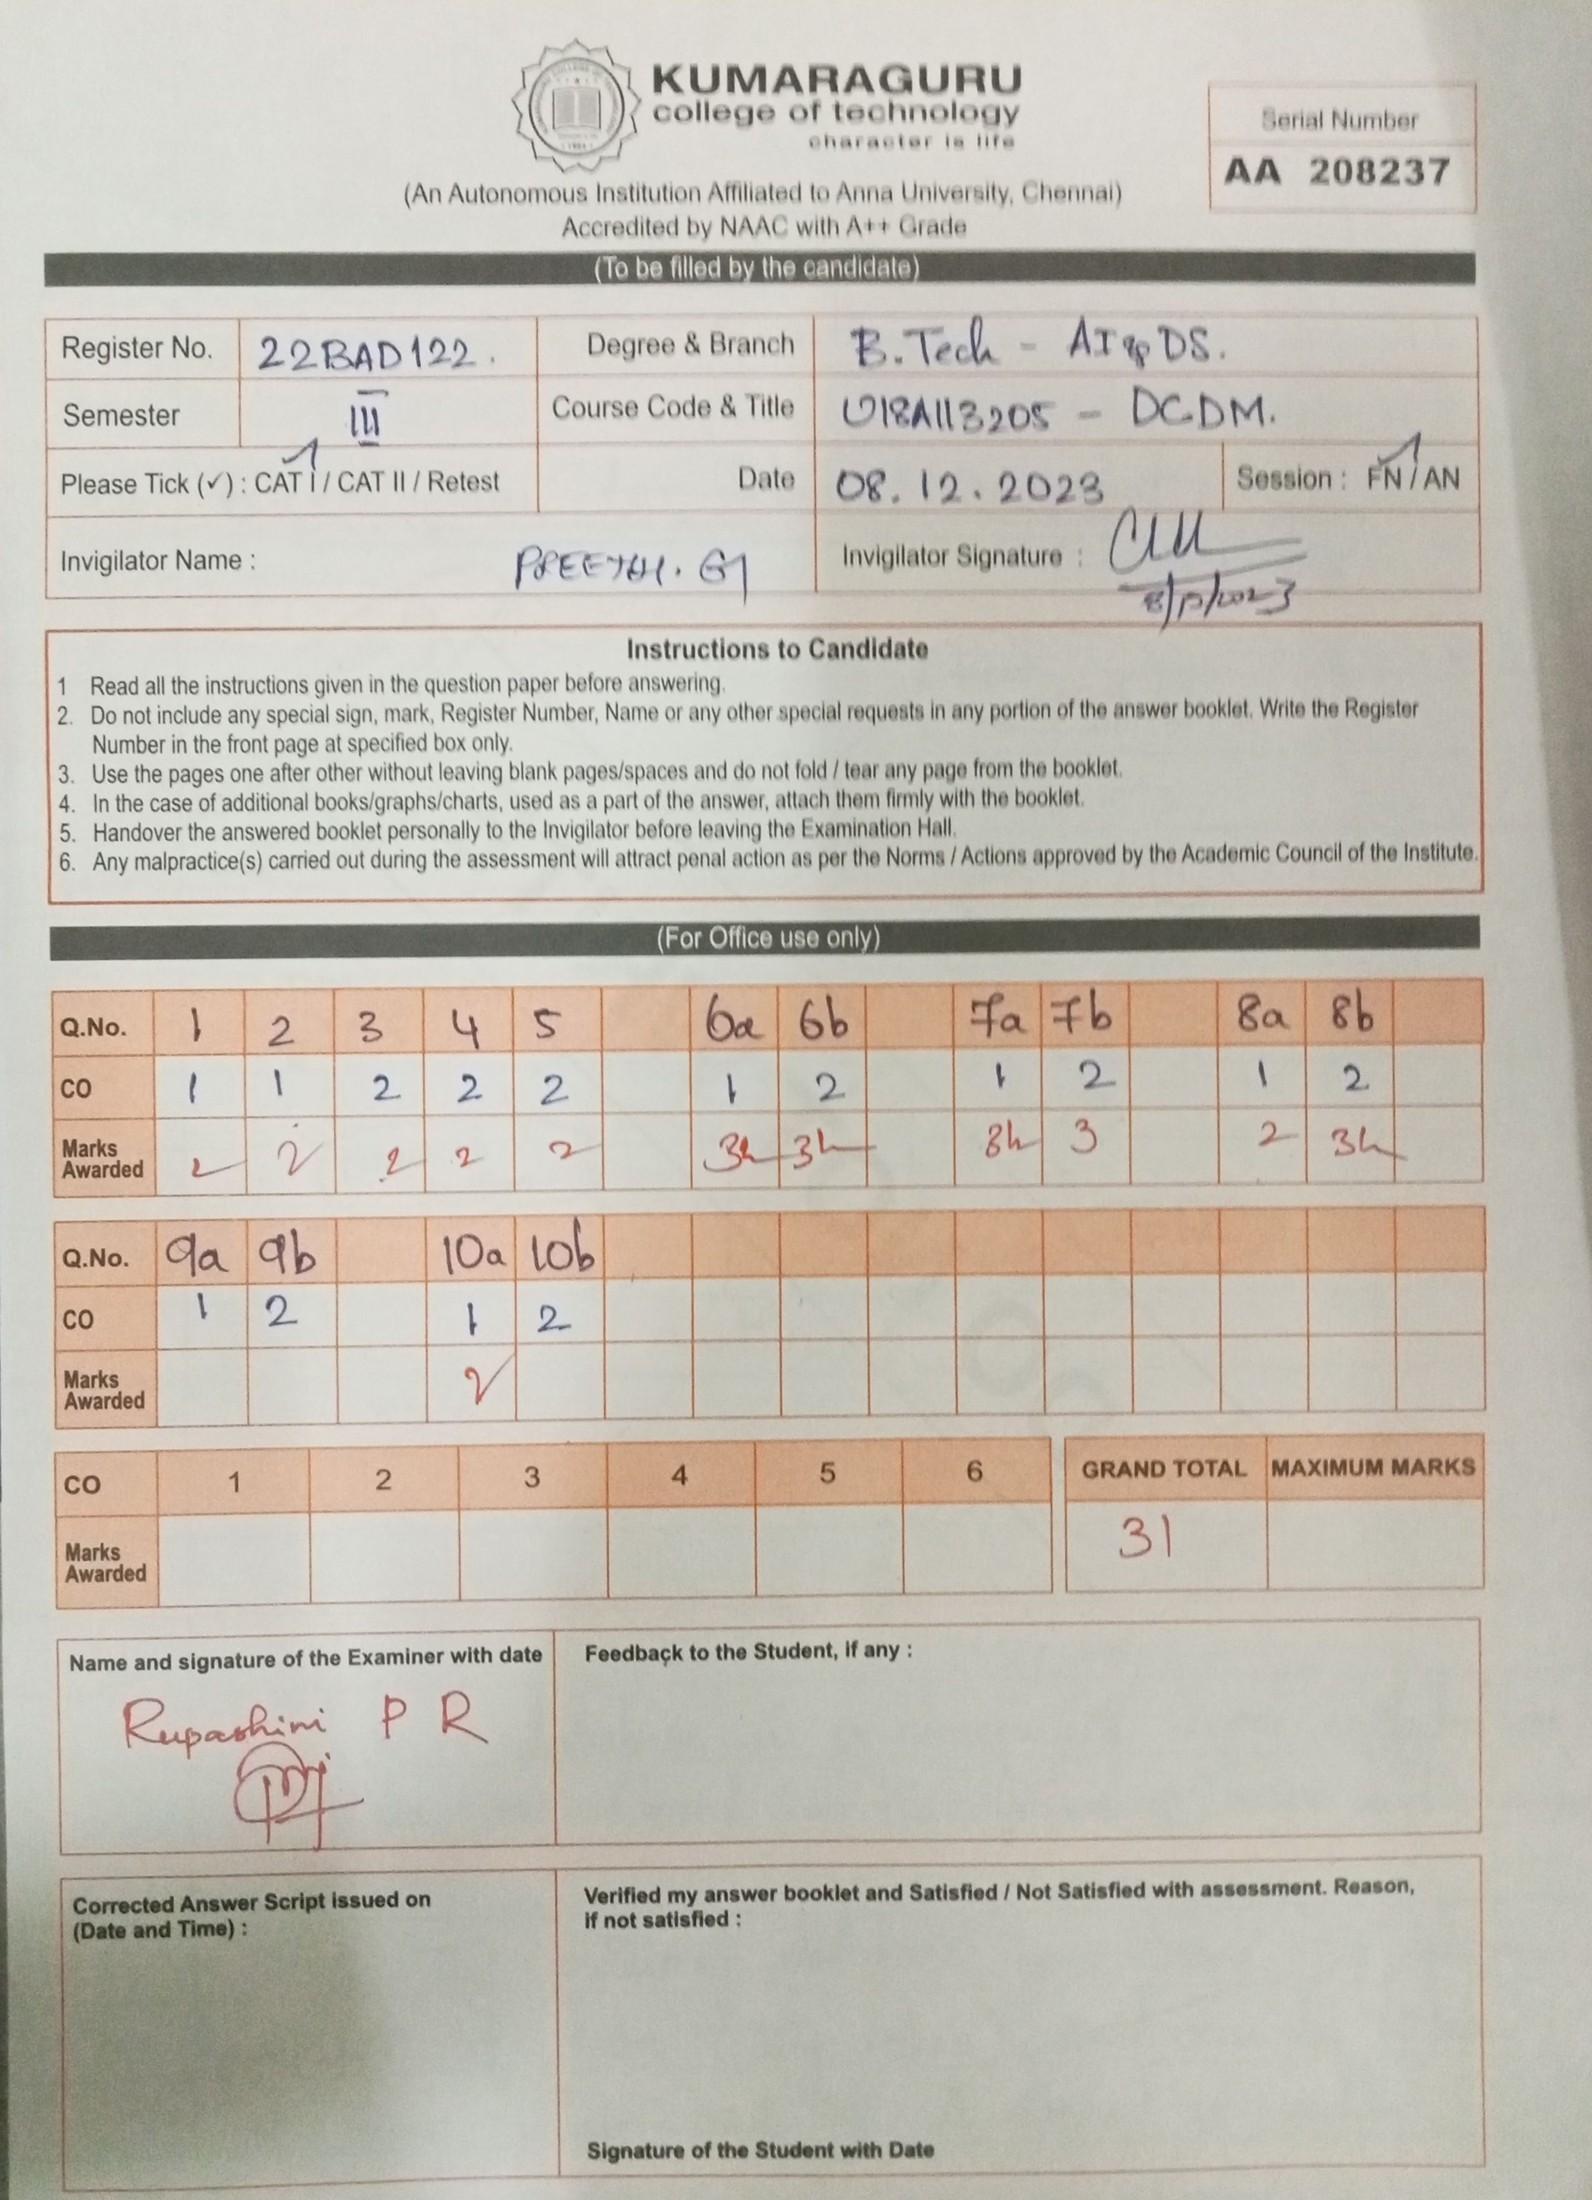 KUMARAGURU
college of technology
character is life
Serial Number
AA 208237
(An Autonomous Institution Affiliated to Anna University, Chennai)
Accredited by NAAC with A++ Grade
(To be filled by the candidate)
Register No. 22BAD122. Degree & Branch B.Tech - AI & DS.
Semester III Course Code & Title U18AII3205 - DCDM.
Please Tick (✓) : CAT I / CAT II / Retest Date 08.12.2023 Session : FN / AN
Invigilator Name : Invigilator Signature :
Instructions to Candidate
1 Read all the instructions given in the question paper before answering.
2. Do not include any special sign, mark, Register Number, Name or any other special requests in any portion of the answer booklet. Write the Register
Number in the front page at specified box only.
3. Use the pages one after other without leaving blank pages/spaces and do not fold / tear any page from the booklet.
4. In the case of additional books/graphs/charts, used as a part of the answer, attach them firmly with the booklet.
5. Handover the answered booklet personally to the Invigilator before leaving the Examination Hall.
6. Any malpractice(s) carried out during the assessment will attract penal action as per the Norms / Actions approved by the Academic Council of the Institute.
(For Office use only)
Q.No. 1 2 3 4 5 6a 6b 7a 7b 8a 8b
CO 1 1 2 2 2 1 2 1 2 1 2
Marks
Awarded 2 2 2 2 2 3 2
Q.No. 9a 9b 10a 10b
CO 1 2 1 2
Marks
Awarded 2
CO 1 2 3 4 5 6 GRAND TOTAL MAXIMUM MARKS
Marks
Awarded 31
Name and signature of the Examiner with date Feedback to the Student, if any :
Rupashini P R
Corrected Answer Script issued on
(Date and Time) :
Verified my answer booklet and Satisfied / Not Satisfied with assessment. Reason,
if not satisfied :
Signature of the Student with Date